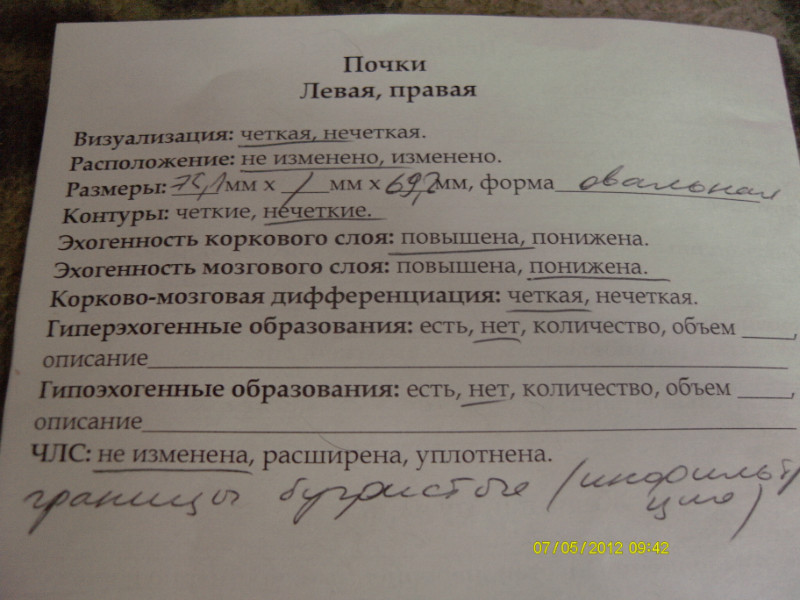 Почки
Левая, правая
Визуализация: четкая, нечеткая.
Расположение: не изменено, изменено.
Размеры: 75,1 мм х / мм х 69,2 мм, форма овальная
Контуры: четкие, нечеткие.
Эхогенность коркового слоя: повышена, понижена.
Эхогенность мозгового слоя: повышена, понижена.
Корково-мозговая дифференциация: четкая, нечеткая.
Гиперэхогенные образования: есть, нет, количество, объем ____,
описание____
Гипоэхогенные образования: есть, нет, количество, объем ____,
описание____
ЧЛС: не изменена, расширена, уплотнена.
границы бугристые (инфильтр
ция)
07/05/2012 09:42